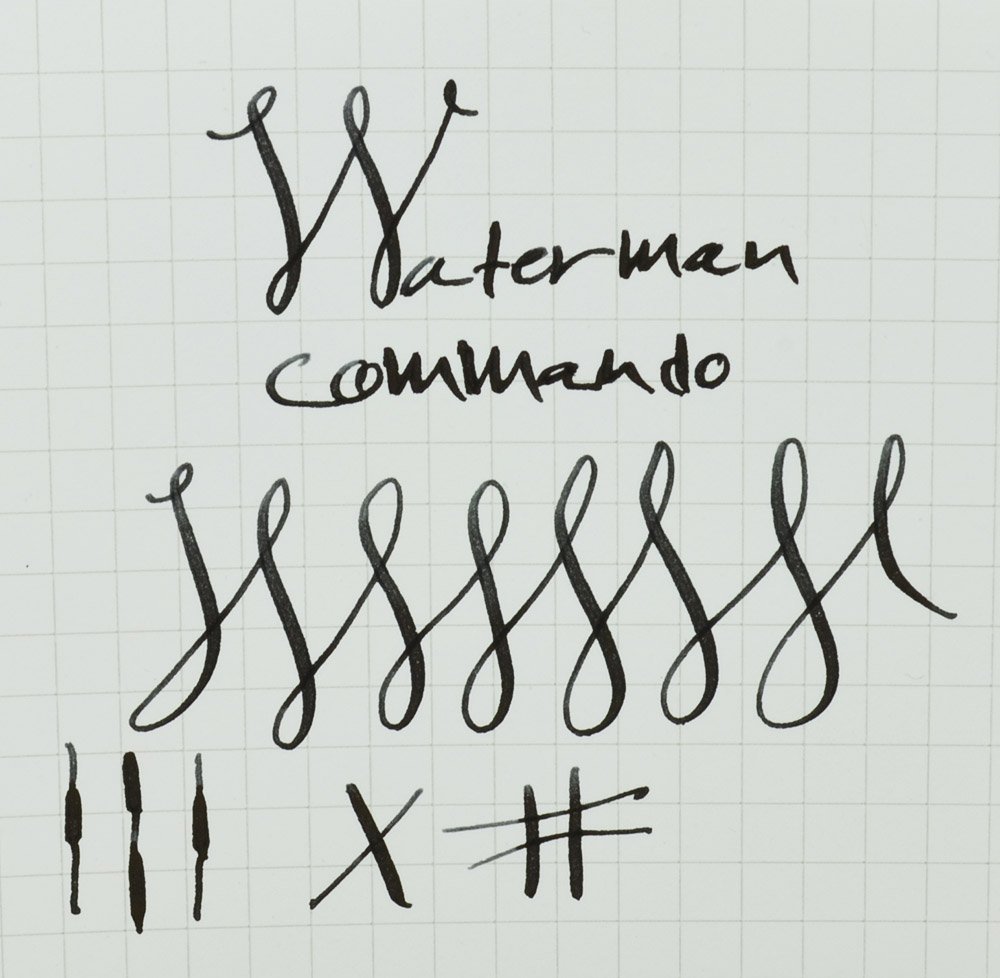 Waterman
commando
X #